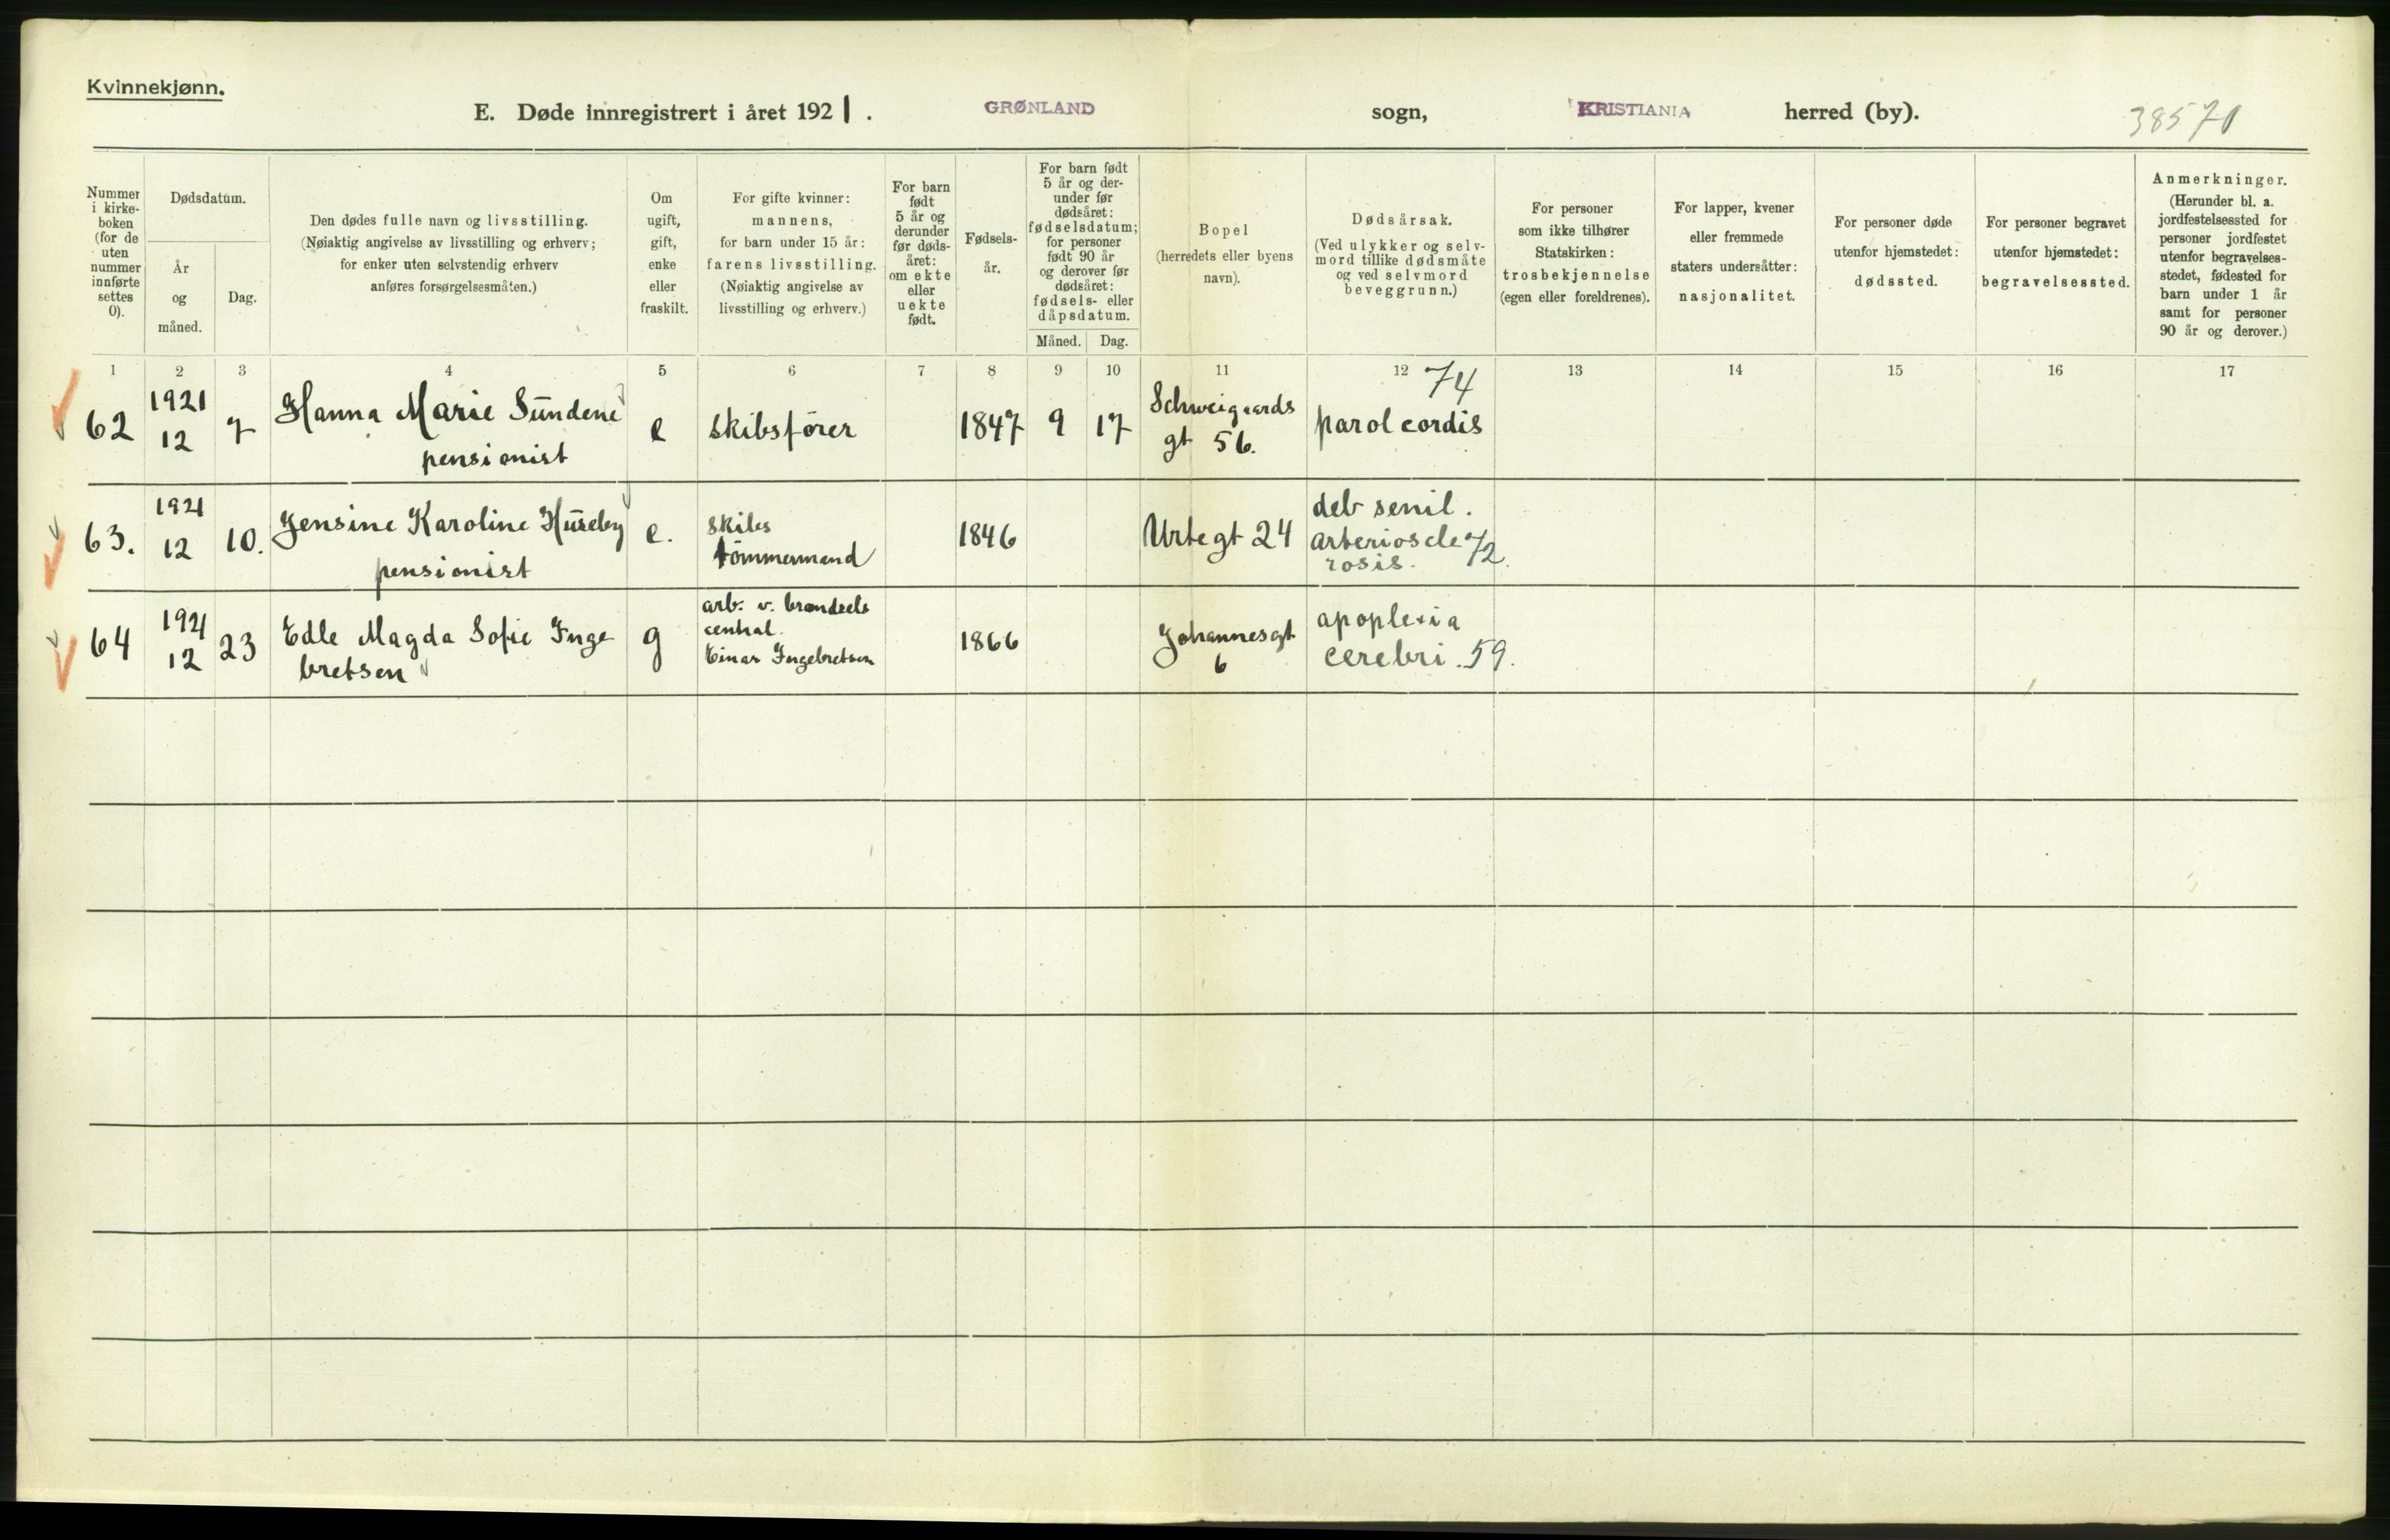 Kvinnekjønn.
E. Døde innregistrert i året 1921. GRØNLAND sogn, KRISTIANIA herred (by). 38570
Nummer i kirke-boken (for de uten nummer innførte settes 0).
Dødsdatum.
År og måned.
Dag.
Den dødes fulle navn og livsstilling.
(Nøiaktig angivelse av livsstilling og erhverv;
for enker uten selvstendig erhverv
anføres forsørgelsesmåten.)
Om ugift, gift, enke eller fraskilt.
For gifte kvinner:
mannens,
for barn under 15 år:
farens livsstilling.
(Nøiaktig angivelse av
livsstilling og erhverv.)
For barn født 5 år og derunder før døds-året: om ekte eller uekte født.
Fødsels-år.
For barn født 5 år og der-under før dødsåret: fødselsdatum; for personer født 90 år og derover før dødsåret: fødsels- eller dåpsdatum.
Måned. Dag.
Bopel
(herredets eller byens
navn).
Dødsårsak.
(Ved ulykker og selv-
mord tillike dødsmåte
og ved selvmord
beveggrunn.)
For personer
som ikke tilhører
Statskirken:
trosbekjennelse
(egen eller foreldrenes).
For lapper, kvener
eller fremmede
staters undersåtter:
nasjonalitet.
For personer døde
utenfor hjemstedet:
dødssted.
For personer begravet
utenfor hjemstedet:
begravelsessted.
Anmerkninger.
(Herunder bl. a.
jordfestelsessted for
personer jordfestet
utenfor begravelses-
stedet, fødested for
barn under 1 år
samt for personer
90 år og derover.)
1 2 3 4 5 6 7 8 9 10 11 12 13 14 15 16 17
62 1921 12 7 Hanna Marie Sundene pensionist e skibsfører 1847 9 17 Schweigaards gt 56. parol cordis 74
63. 1921 12 10. Jensine Karoline Huseby pensionist e. skibs tømmermand 1846 Urtegt 24 deb senil. arteriosclerosis. 72.
64 1921 12 23 Edle Magda Sofie Ingebretsen g arb. v. brændsels central. Einar Ingebretsen 1866 Johannesgt 6 apoplexia cerebri. 59.